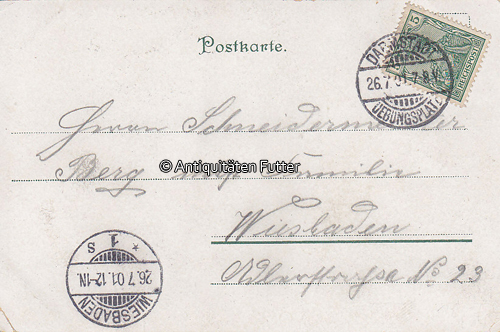 Postkarte.
5
REICHSPOST
DARMSTADT
26.7.01.7-8
UEBUNGSPLATZ
Herrn Schneidermeister
Berg Familie
© Antiquitäten Futter
Wiesbaden
Adlerstrasse No 23
* 1 S
26.7.01.12-1N.
WIESBADEN